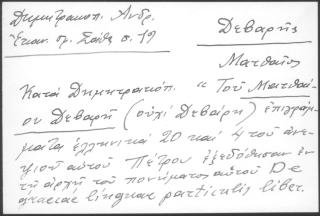 Δημητρακοπ. Ανδρ.
Δεβαρῆς
Ματθαῖος
Κατὰ Δημητρακόπ. "Τοῦ Ματθαί-
ου Δεβαρῆ (οὐχὶ Δεβάρη) ἐπιγράμ-
ματα ἑλληνικὰ 20 καὶ 4 τοῦ ἀνε-
ψιοῦ αὐτοῦ Πέτρου ἐξεδόθησαν ἐν
τῇ ἀρχῇ τοῦ πονήματος αὐτοῦ De
graecae linguae particulis liber.